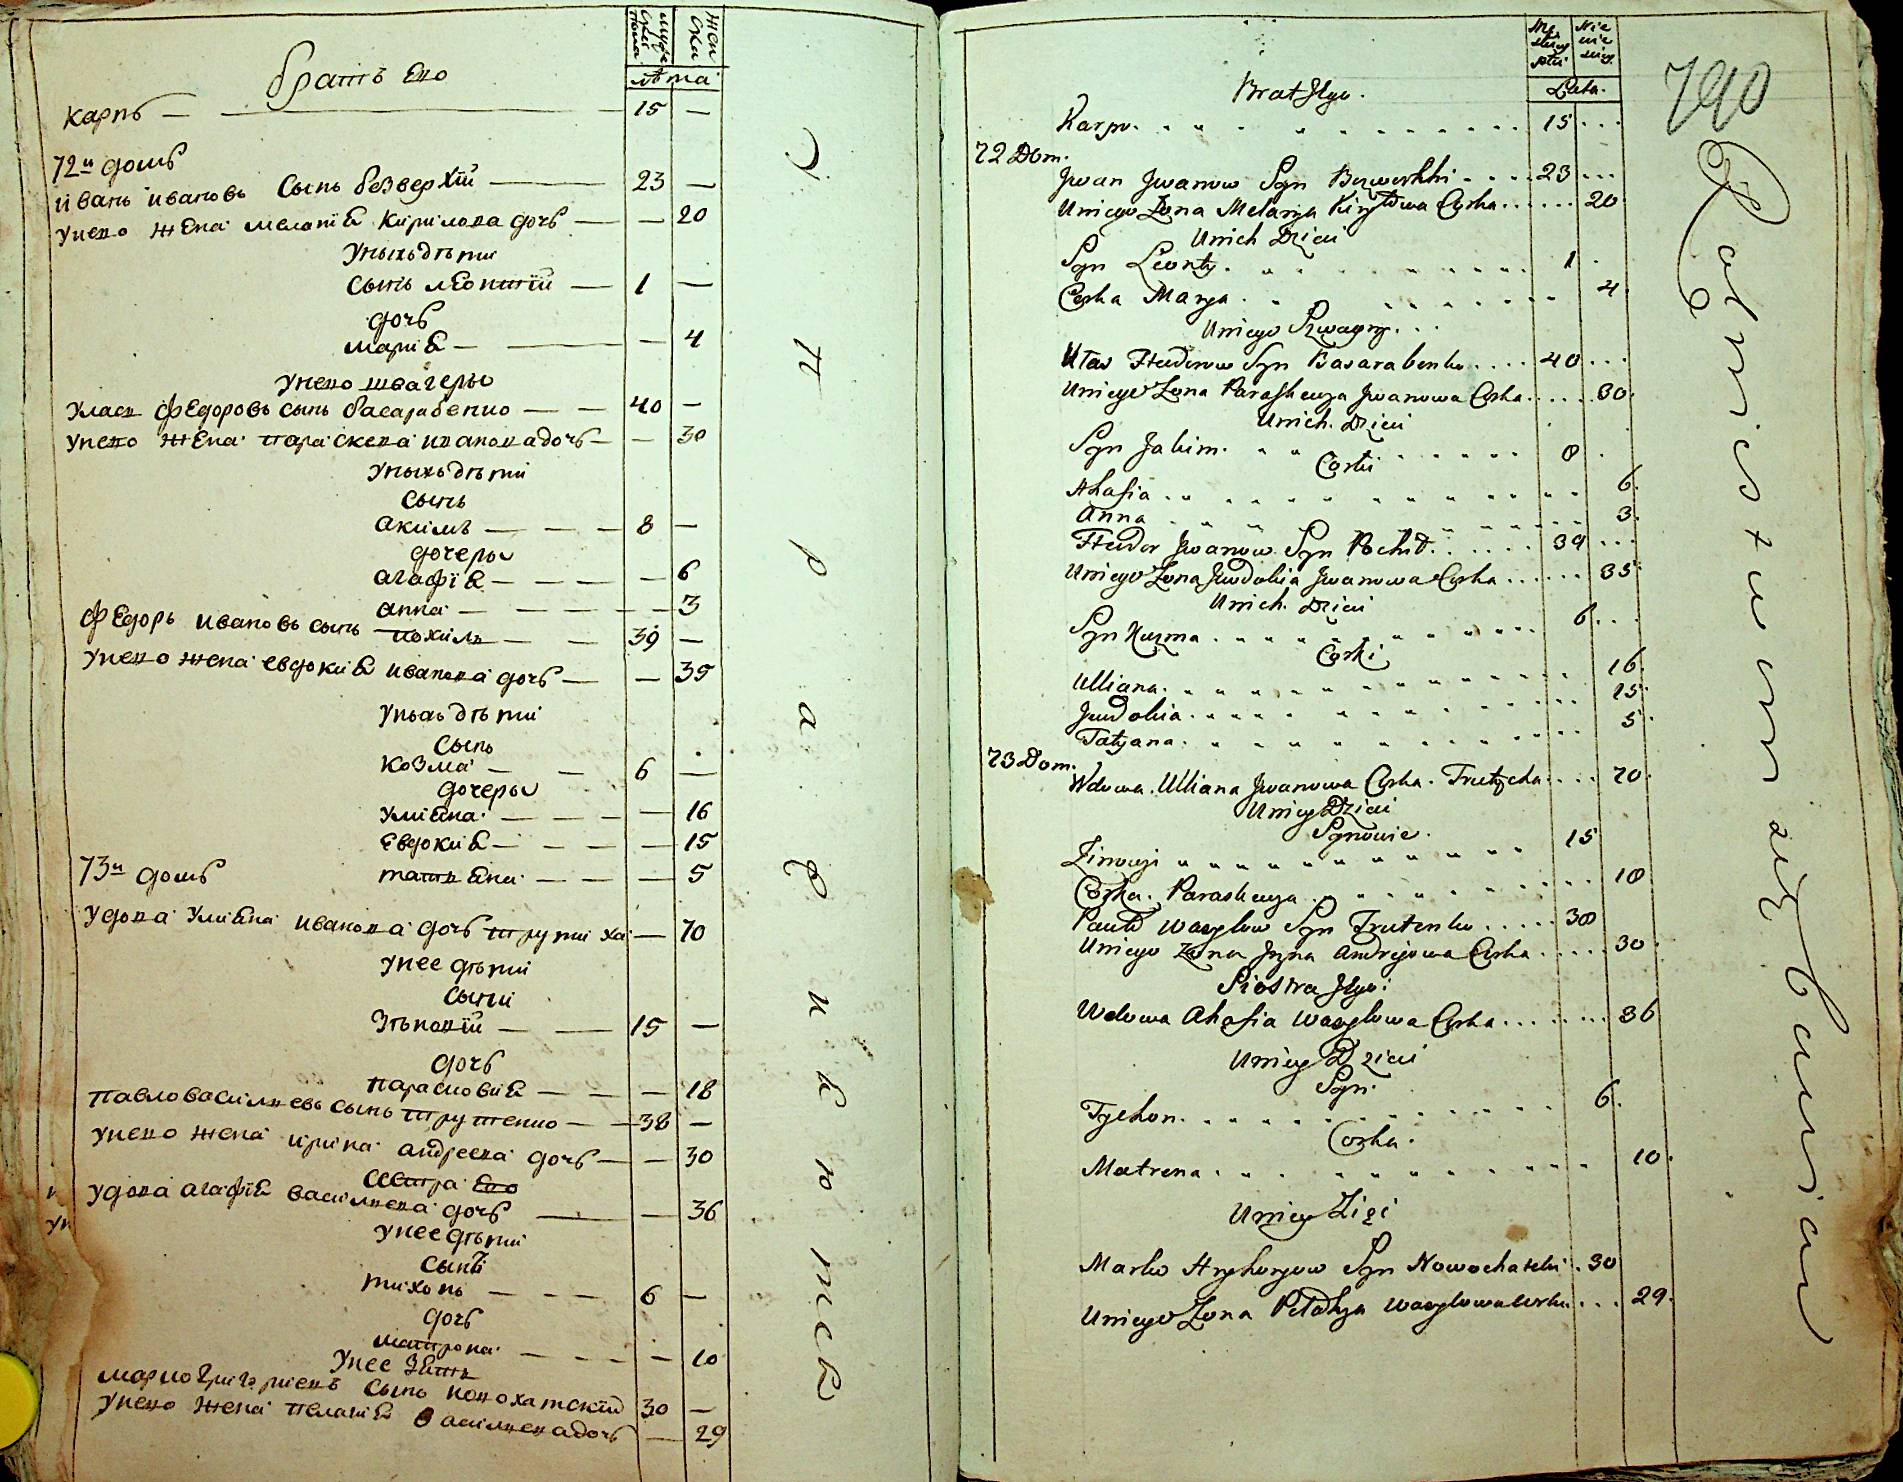 мужеска пола
женска
лѣта
братъ его
Карпъ — 15 —
72й домъ
Иванъ Ивановъ сынъ безверхїй — 23 —
унего жена меланиѣ Кирилова дочъ — — 20
унихъ дѣти
сынъ леонтїй — 1 —
дочъ
мариѣ — — 4
унего швагеры
Уласъ федоровъ сынъ басарабенко — 40 —
унего жена параскева иванова дочъ — — 30
унихъ дѣти
сынъ
акимъ — 8 —
дочеры
агафїѣ — — 6
анна — — 3
федоръ ивановъ сынъ похилъ — 39 —
унего жена евдокиѣ иванова дочъ — — 35
унихъ дѣти
сынъ
козма — 6 —
дочеры
улиѣна — — 16
евдокиѣ — — 15
татѣна — — 5
73й домъ
удова улиѣна иванова дочъ трутиха — 70
унее дѣти
сыни
зѣновїй — 15 —
дочъ
парасковиѣ — — 18
павло василиевъ сынъ трутенко — 38 —
унего жена ирина андреева дочъ — — 30
сестра его
удова агафїѣ василиева дочъ — — 36
унее дѣти
сынъ
тихонъ — 6 —
дочъ
матрона — — 10
унее зѣть
марко григориевъ сынъ новохатскїй 30 —
унего жена пелагиѣ василиева дочъ — 29
Męskiey płci
Lata.
Brat Jego.
Karp. 15
72 Dom.
Jwan Jwanow Syn Bezwerkhi 23
Uniego Żona Melanja Kiryłowa Corka 20
Unich Dzieci
Syn Leonty. 1
Corka Marya. 4
Uniego Szwagry.
Ułas Fteodorow Syn Basarabenko 40
Uniego Żona Paraskewja Jwanowa Corka 30
Unich Dzieci
Syn Jakim. 8
Corki
Ahafia 6
Anna 3
Fteodor Jwanow Syn Pochił 39
Uniego Żona Jewdokia Jwanowa Corka 35
Unich Dzieci
Syn Kuzma 6
Corki
Ulliana 16
Jewdokia 15
Tatyana 5
73 Dom.
Wdowa Ulliana Jwanowa Corka Trutycha 70
Uniey Dzieci
Synowie.
Zinowji 15
Corka. Paraskewya 18
Paweł Wasylow Syn Trutenko 38
Uniego Żona Jryna Andrejowa Corka 30
Siostra Jego:
Wdowa Ahafia Wasylowa Corka 36
Uniey Dzieci
Syn.
Tychon. 6
Corka.
Matrena 10
Uniey Zięć
Marko Hryhoryow Syn Nowochatski 30
Uniego Żona Pelahja Wasylowa Corka 29
790